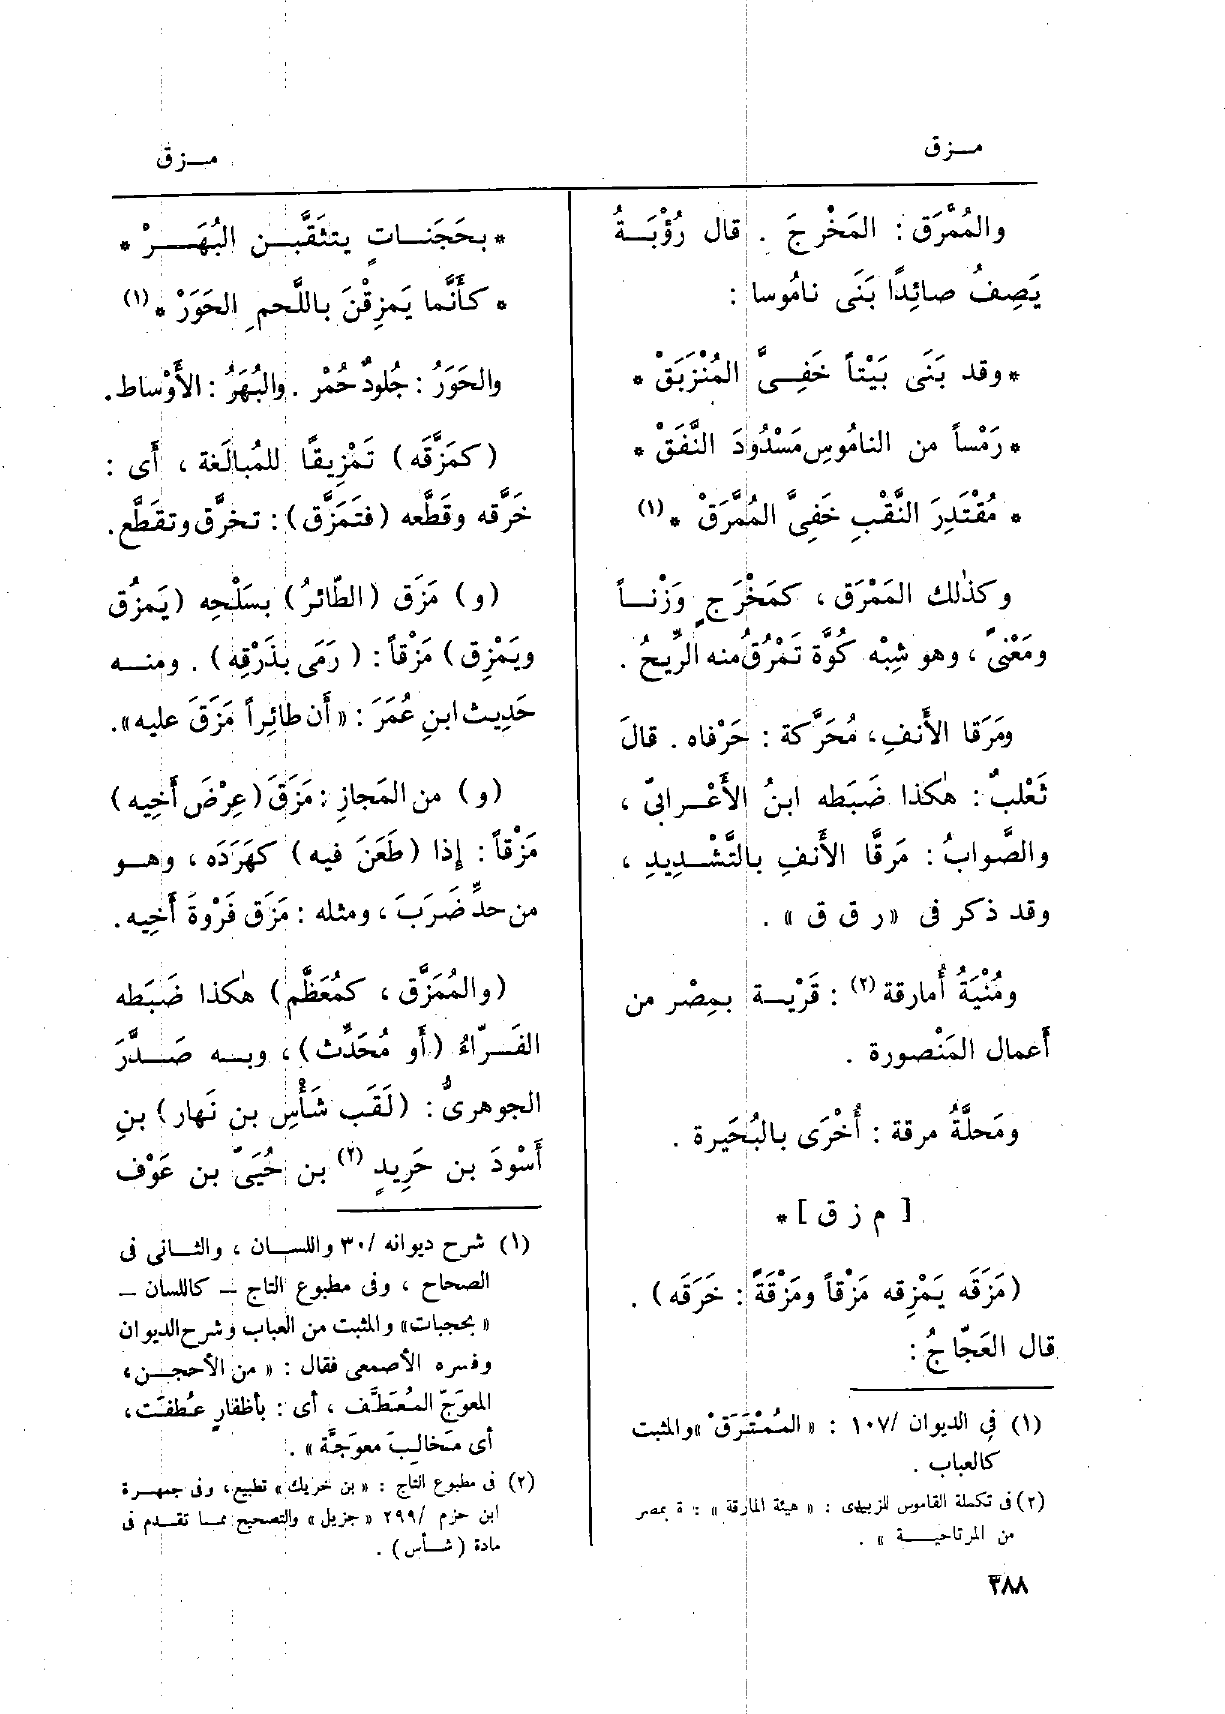 مـزق
مـزق
والمُمَّرَق : المَخْرجَ . قال رُؤْبَةُ
يَصِفُ صائِدًا بَنَى نامُوسا :
* وقد بَنَى بَيْتاً خَفِىَّ المُنْزَبَقْ *
* رَمْساً من النامُوسِ مَسْدُودَ النَّفَقْ *
* مُقْتَدِرَ النَّقْبِ خَفِىَّ المُمَّرَقْ * (١)
وكذٰلك المَمْرَق ، كمَخْرَجٍ وَزْنـاً
ومَعْنىً ، وهو شِبْه كُوَّة تَمْرُقُ منه الرِّيحُ .
ومَرَقا الأَنفِ ، مُحَرَّكة : حَرْفاه . قالَ
ثَعْلبٌ : هٰكذا ضَبَطه ابنُ الأَعْرابىّ ،
والصَّوابُ : مَرقَّا الأَنفِ بالتَّشْديدِ ،
وقد ذكر فى «ر ق ق» .
ومُنْيَةُ أُمارقة (٢) : قَرْيـة بـمِصْر من
أَعمال المَنْصورة .
ومَحلَّةُ مرقة : أُخْرَى بالبُحَيرة .
[ م ز ق ] *
(مَزَقَه يَمْزِقه مَزْقاً ومَزْقَةً : خَرَقَه) .
قال العَجّاجُ :
(١) فى الديوان /١٠٧ : «المُمْتَرَقْ» والمثبت
كالعباب .
(٢) فى تكملة القاموس للزبيدى : « هيئة المارقة » : ة بمصر
من المرتاحيـة » .
٣٨٨
* بحَجَنـاتٍ يتثَقَّبـن البُهَـرْ *
* كأَنَّما يَمزِقْنَ باللَّحمِ الحَوَرْ * (١)
والحَوَرُ : جُلودٌ حُمْر . والبُهَرُ : الأَوْساط .
(كمَزَّقَه) تَمْزِيقًا للمُبالَغة ، أَى :
خَرَّقه وقَطَّعه (فتَمَزَّق) : تخرَّق وتقَطَّع .
(و) مَزَق (الطّائرُ) بسَلْحِه (يَمزُق
ويَمْزِق) مَزْقاً : (رَمَى بذَرْقِه) . ومنـه
حَدِيث ابنِ عُمَرَ : «أَن طائِراً مَزَقَ عليه» .
(و) من المَجازِ : مَزَقَ (عِرْضَ أَخِيه)
مَزْقاً : إِذا (طَعَنَ فيه) كهَرَدَه ، وهـو
من حدِّ ضَرَبَ ، ومثله : مَزَق فَرْوةَ أَخِيه .
(والمُمَزَّق ، كمُعَظَّم) هٰكذا ضَبَطه
الفَـرّاءُ (أَو مُحَدِّث) ، وبـه صَـدَّرَ
الجوهرىُّ : (لَقَب شَأْسِ بن نَهار) بنِ
أَسْودَ بن حَرِيدٍ (٢) بن حُيَىّ بن عَوْف
(١) شرح ديوانه /٣٠ واللسـان ، والثـانى فى
الصحاح ، وفى مطبوع التاج – كاللسان –
« بحجبات» والمثبت من العباب وشرح الديوان
وفسره الأصمعى فقال : « من الأحجـن ،
المعوَجّ المُعَطَّف ، أى : بأظفارٍ عُطفَت ،
أى مَخالِبَ معوَجَّة » .
(٢) فى مطبوع التاج : « بن خريك » تطبيع ، وفى جمهـرة
ابن حزم /٢٩٩ « جزيل » والتصحيح ممـا تقـدم فى
مادة (شـأس) .